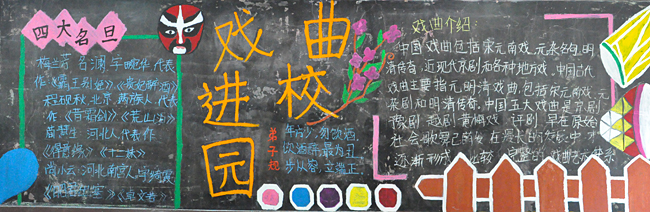 四大名旦
梅兰芳 名澜 字畹华 代表
作《霸王别姬》《贵妃醉酒》
程砚秋 北京 满族人 代表
作《青霜剑》《荒山泪》
荀慧生 河北人 代表作
尚小云 河北南宫人
《卓文君》
戏曲进校园
弟子规
年方少,勿饮酒
饮酒醉,最为丑
步从容,立端正
戏曲介绍:
中国戏曲包括宋元南戏、元杂剧、明
清传奇、近现代京剧和各种地方戏,中国古代
戏曲主要指元明清戏曲,包括宋元南戏、元
杂剧和明清传奇。中国五大戏曲是京剧
豫剧 越剧 黄梅戏 评剧 早在原始
社会歌舞已萌发 在漫长的发展中
逐渐形成 比较完整的戏曲艺术体系